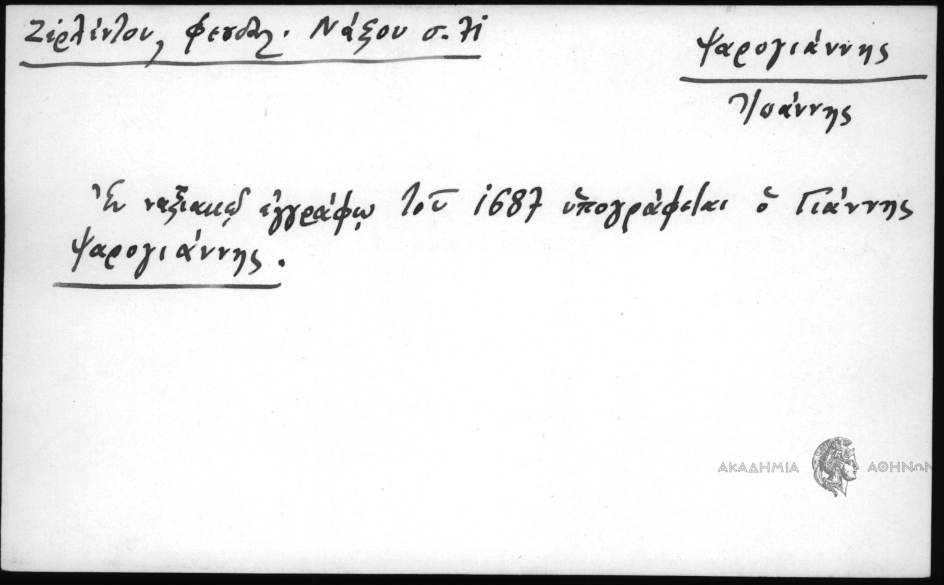 Ζερλέντου, φευδαλ. Νάξου σ. 71
Ψαρογιάννης
Ἰωάννης
Ἐν ναξιακῷ ἐγγράφῳ τοῦ 1687 ὑπογράφεται ὁ Γιάννης
Ψαρογιάννης.
ΑΚΑΔΗΜΙΑ ΑΘΗΝΩΝ